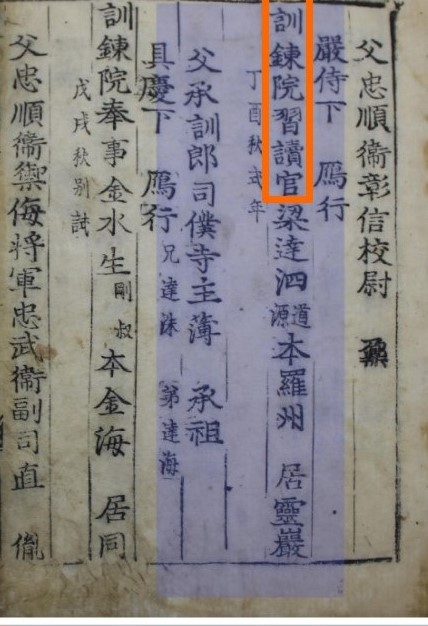 父忠順衞彰信校尉
嚴侍下 鴈行
訓鍊院習讀官梁達泗 道源 本羅州 居靈巖
丁酉秋式年
父承訓郎司僕寺主薄 承祖
具慶下 鴈行 兄達洙 第達海
訓鍊院奉事金水生 剛叔 本金海 居同
戊戌秋别試
父忠順衞禦侮將軍忠武衞副司直